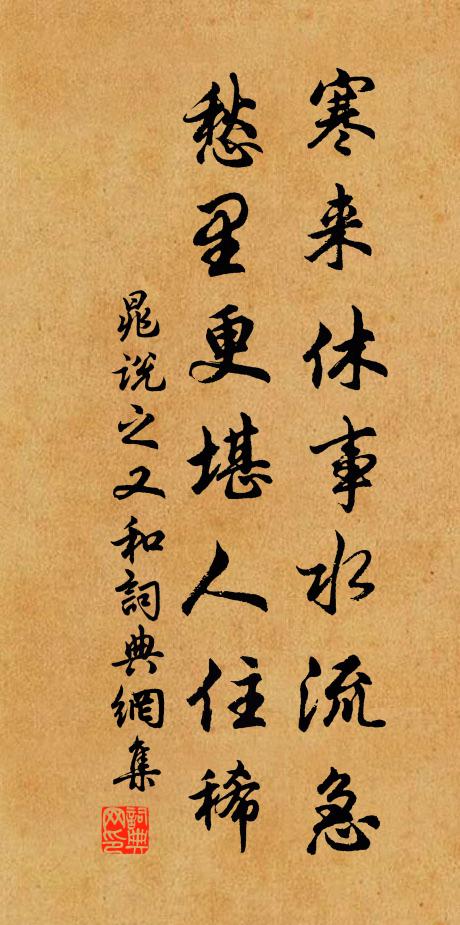 寒来休事水流急
愁里更堪人住稀
晁说之又和詞典網集
詞典网印